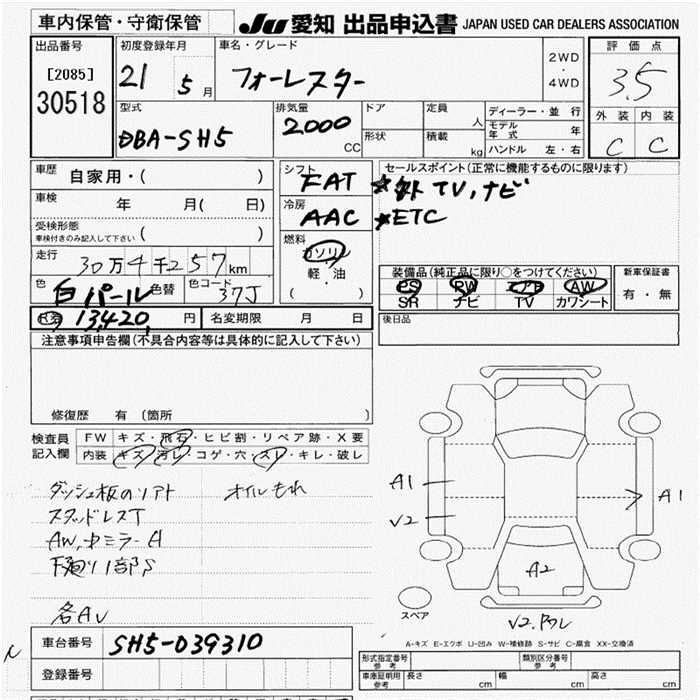 車内保管・守衛保管
JU 愛知 出品申込書 JAPAN USED CAR DEALERS ASSOCIATION
出品番号
[2085]
30518
初度登録年月
21 5 月
車名・グレード
フォーレスター
2WD
・
4WD
評価点
3.5
外装 内装
C C
型式
DBA-SH5
排気量
2000
CC
ドア
形状
定員
人
積載
kg
ディーラー・並行
モデル年式 年
ハンドル 左・右
車歴
自家用・( )
車検
年 月( 日)
受検形態
車検付きのみ記入して下さい ( )
走行
30万4千257 km
色
白パール 色替
色コード
37J
シフト
FAT
冷房
AAC
燃料
ガソリン
軽・油
( )
セールスポイント(正常に機能するものに限ります)
☆外TV,ナビ
☆ETC
装備品(純正品に限り○をつけてください)
PS PW エアB AW
SR ナビ TV カワシート
新車保証書
有・無
後日品
13,420, 円
名変期限 月 日
注意事項申告欄(不具合内容等は具体的に記入して下さい)
修復歴 有 〔箇所 〕
検査員
記入欄
FW キズ・飛石・ヒビ割・リペア跡・X要
内装 キズ・汚レ・コゲ・穴・スレ・キレ・破レ
ダッシュ板のソフト オイルもれ
スタッドレスT
AW,ドミラーA
下廻り1部S
各AU
A1
V2
A1
A2
V2.アワレ
スペア
A-キズ E-エクボ U-凹み W-補修跡 S-サビ C-腐食 XX-交換済
車台番号
SH5-039310
登録番号
型式指定番号
参考
類別区分番号
参考
車庫証明用
参考
長さ cm
幅 cm
高さ cm